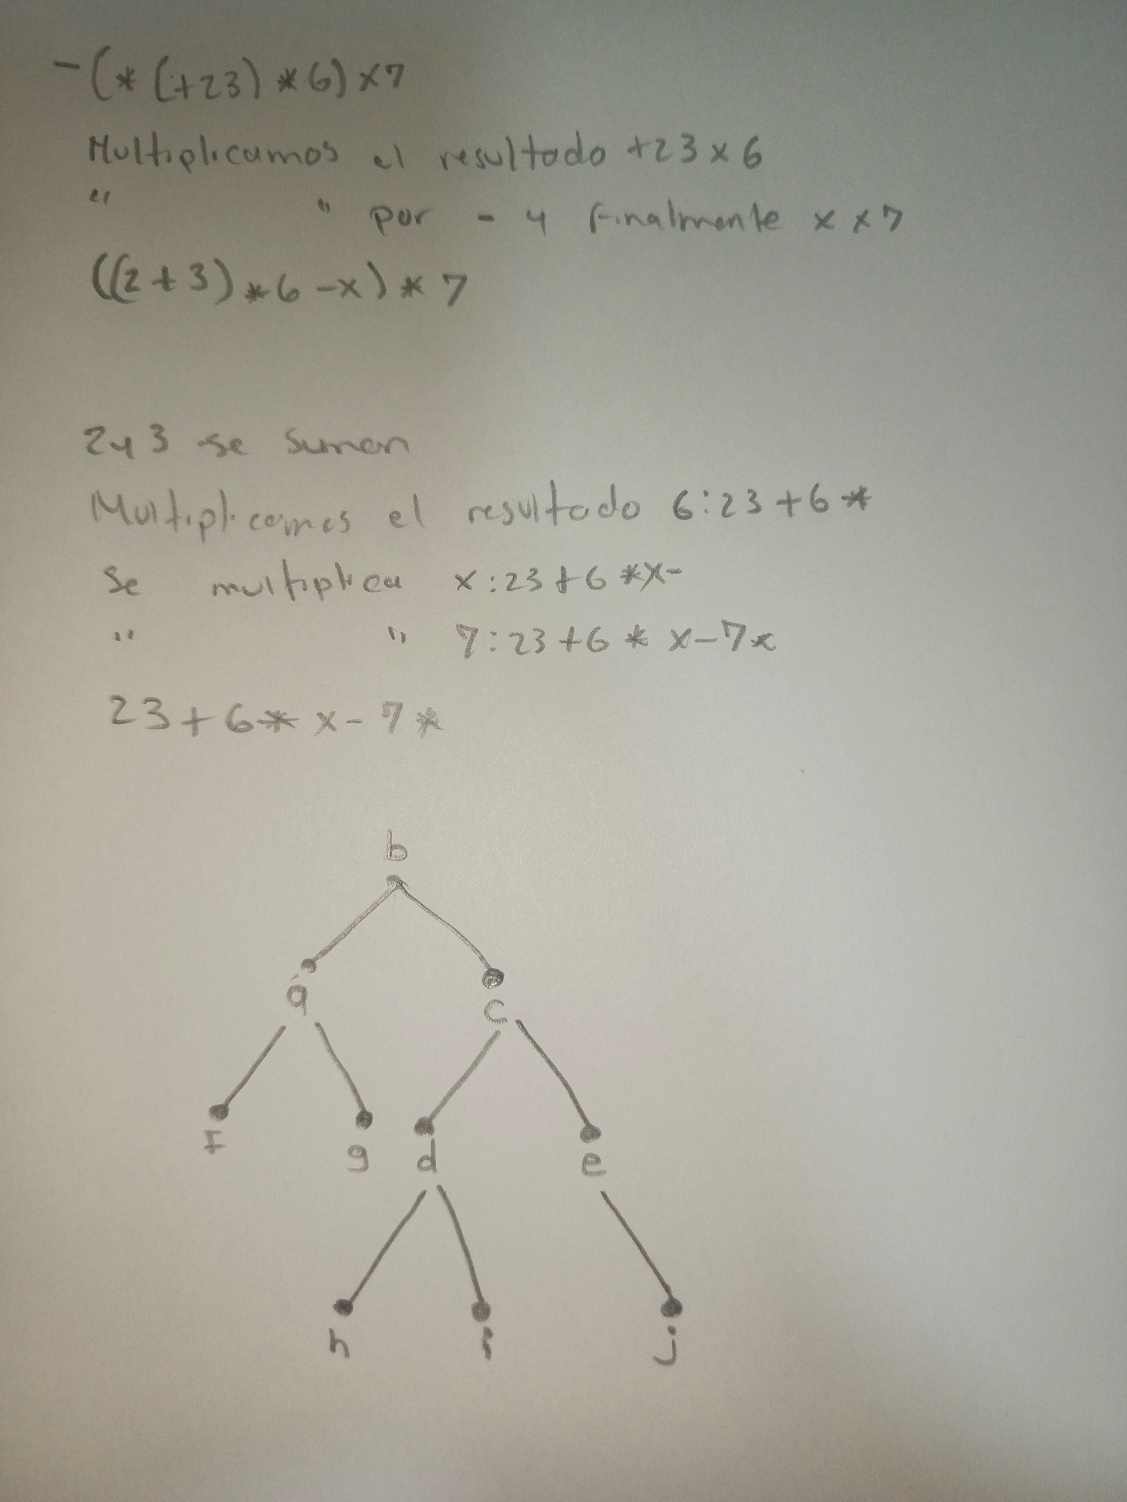 -(*(+23)*6)x7
Multiplicamos el resultado +23x6
" " por - y finalmente x x7
((2+3)*6-x)*7
2y3 se suman
Multiplicamos el resultado 6:23+6*
Se multiplica x:23+6*x-
" " 7:23+6*x-7*
23+6*x-7*
b
a c
f g d e
h i j